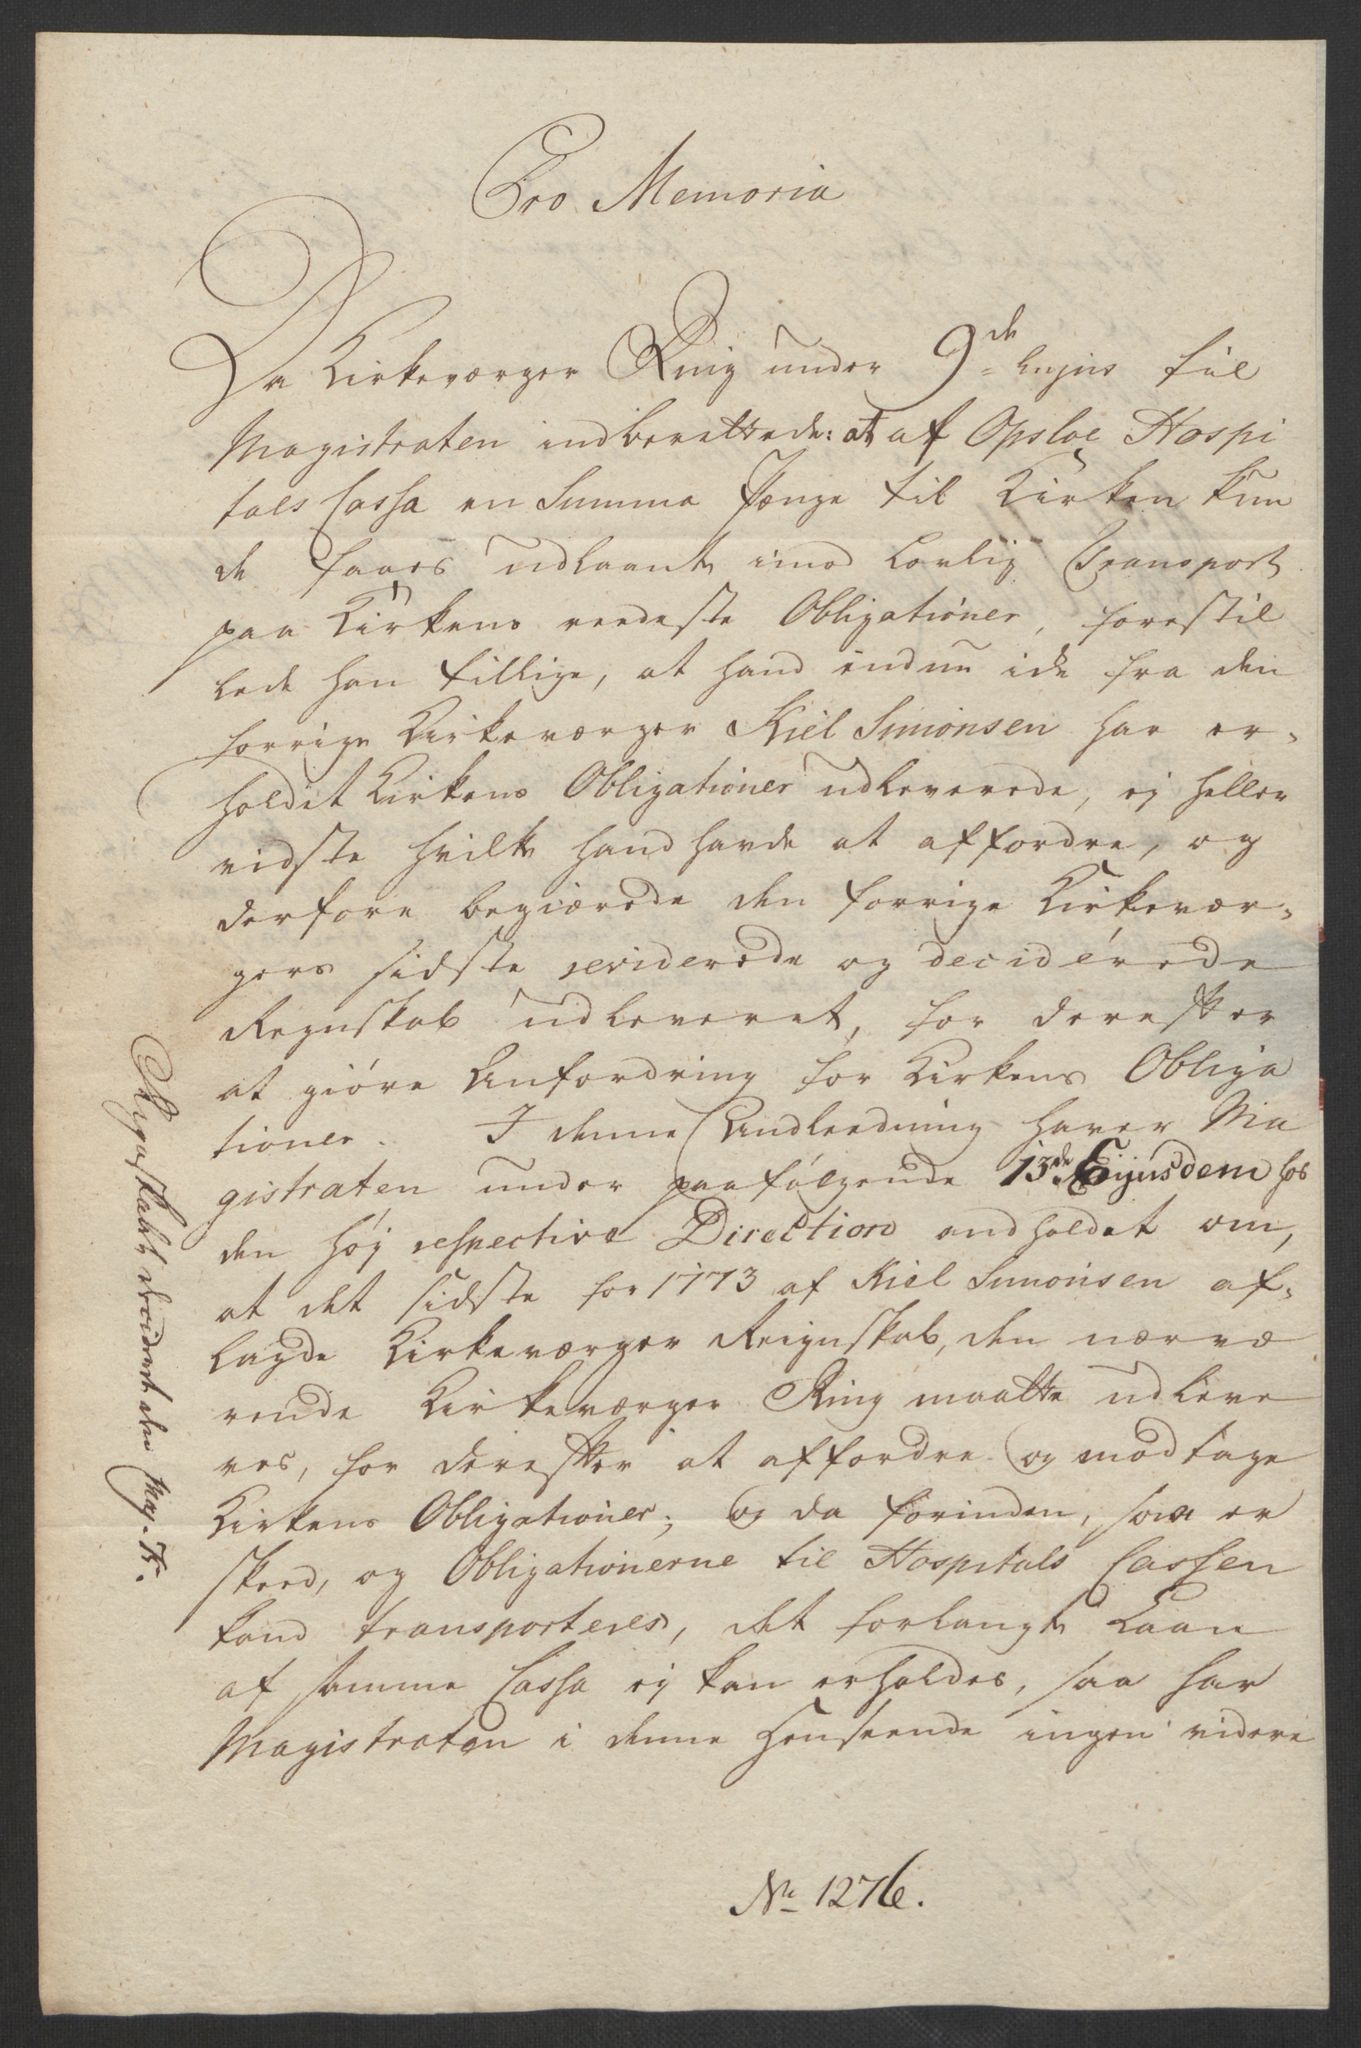 Pro Memoria
Da Kirkeværger Ring under 9de hujus til
Magistraten indberettede: at af Opsloe Hospi
tals Cassa en Summa Penge til Kirken kun
de faaes udlaant imod lovlig Transport
paa Kirkens reedeste Obligationer, forestil
lede han tillige, at hand endnu icke fra den
forrige Kirkeværger Kiel Simonsen har er-
holdet Kirkens Obligationer udleverede, ej heller
vidste hvilke hand havde at affordre, og
derfore begiærede den forrige Kirkevær-
gers sidste reviderede og deciderede
Regnskab udleveret, for derefter
at giöre Anfordring for Kirkens Obliga
tioner. I denne Anleedning haver Ma
gistraten under paafölgende 13de Ejusdem hos
den höj respective Direction andholdet om,
at det sidste for 1773 af Kiel Simonsen af-
lagde Kirkeværger Reignskab, den nærvæ
rende Kirkeværger Ring maatte udleve
res, for derefter at affordre og modtage
Kirkens Obligationer; og da forinden, saa er
skeed, og Obligationerne til Hospitals Cassen
kand transporteres, det forlangte Laan
af samme Cassa ej kan erholdes, saa har
Magistraten i denne Henseende ingen videre
No 1276.
Regnskabet den